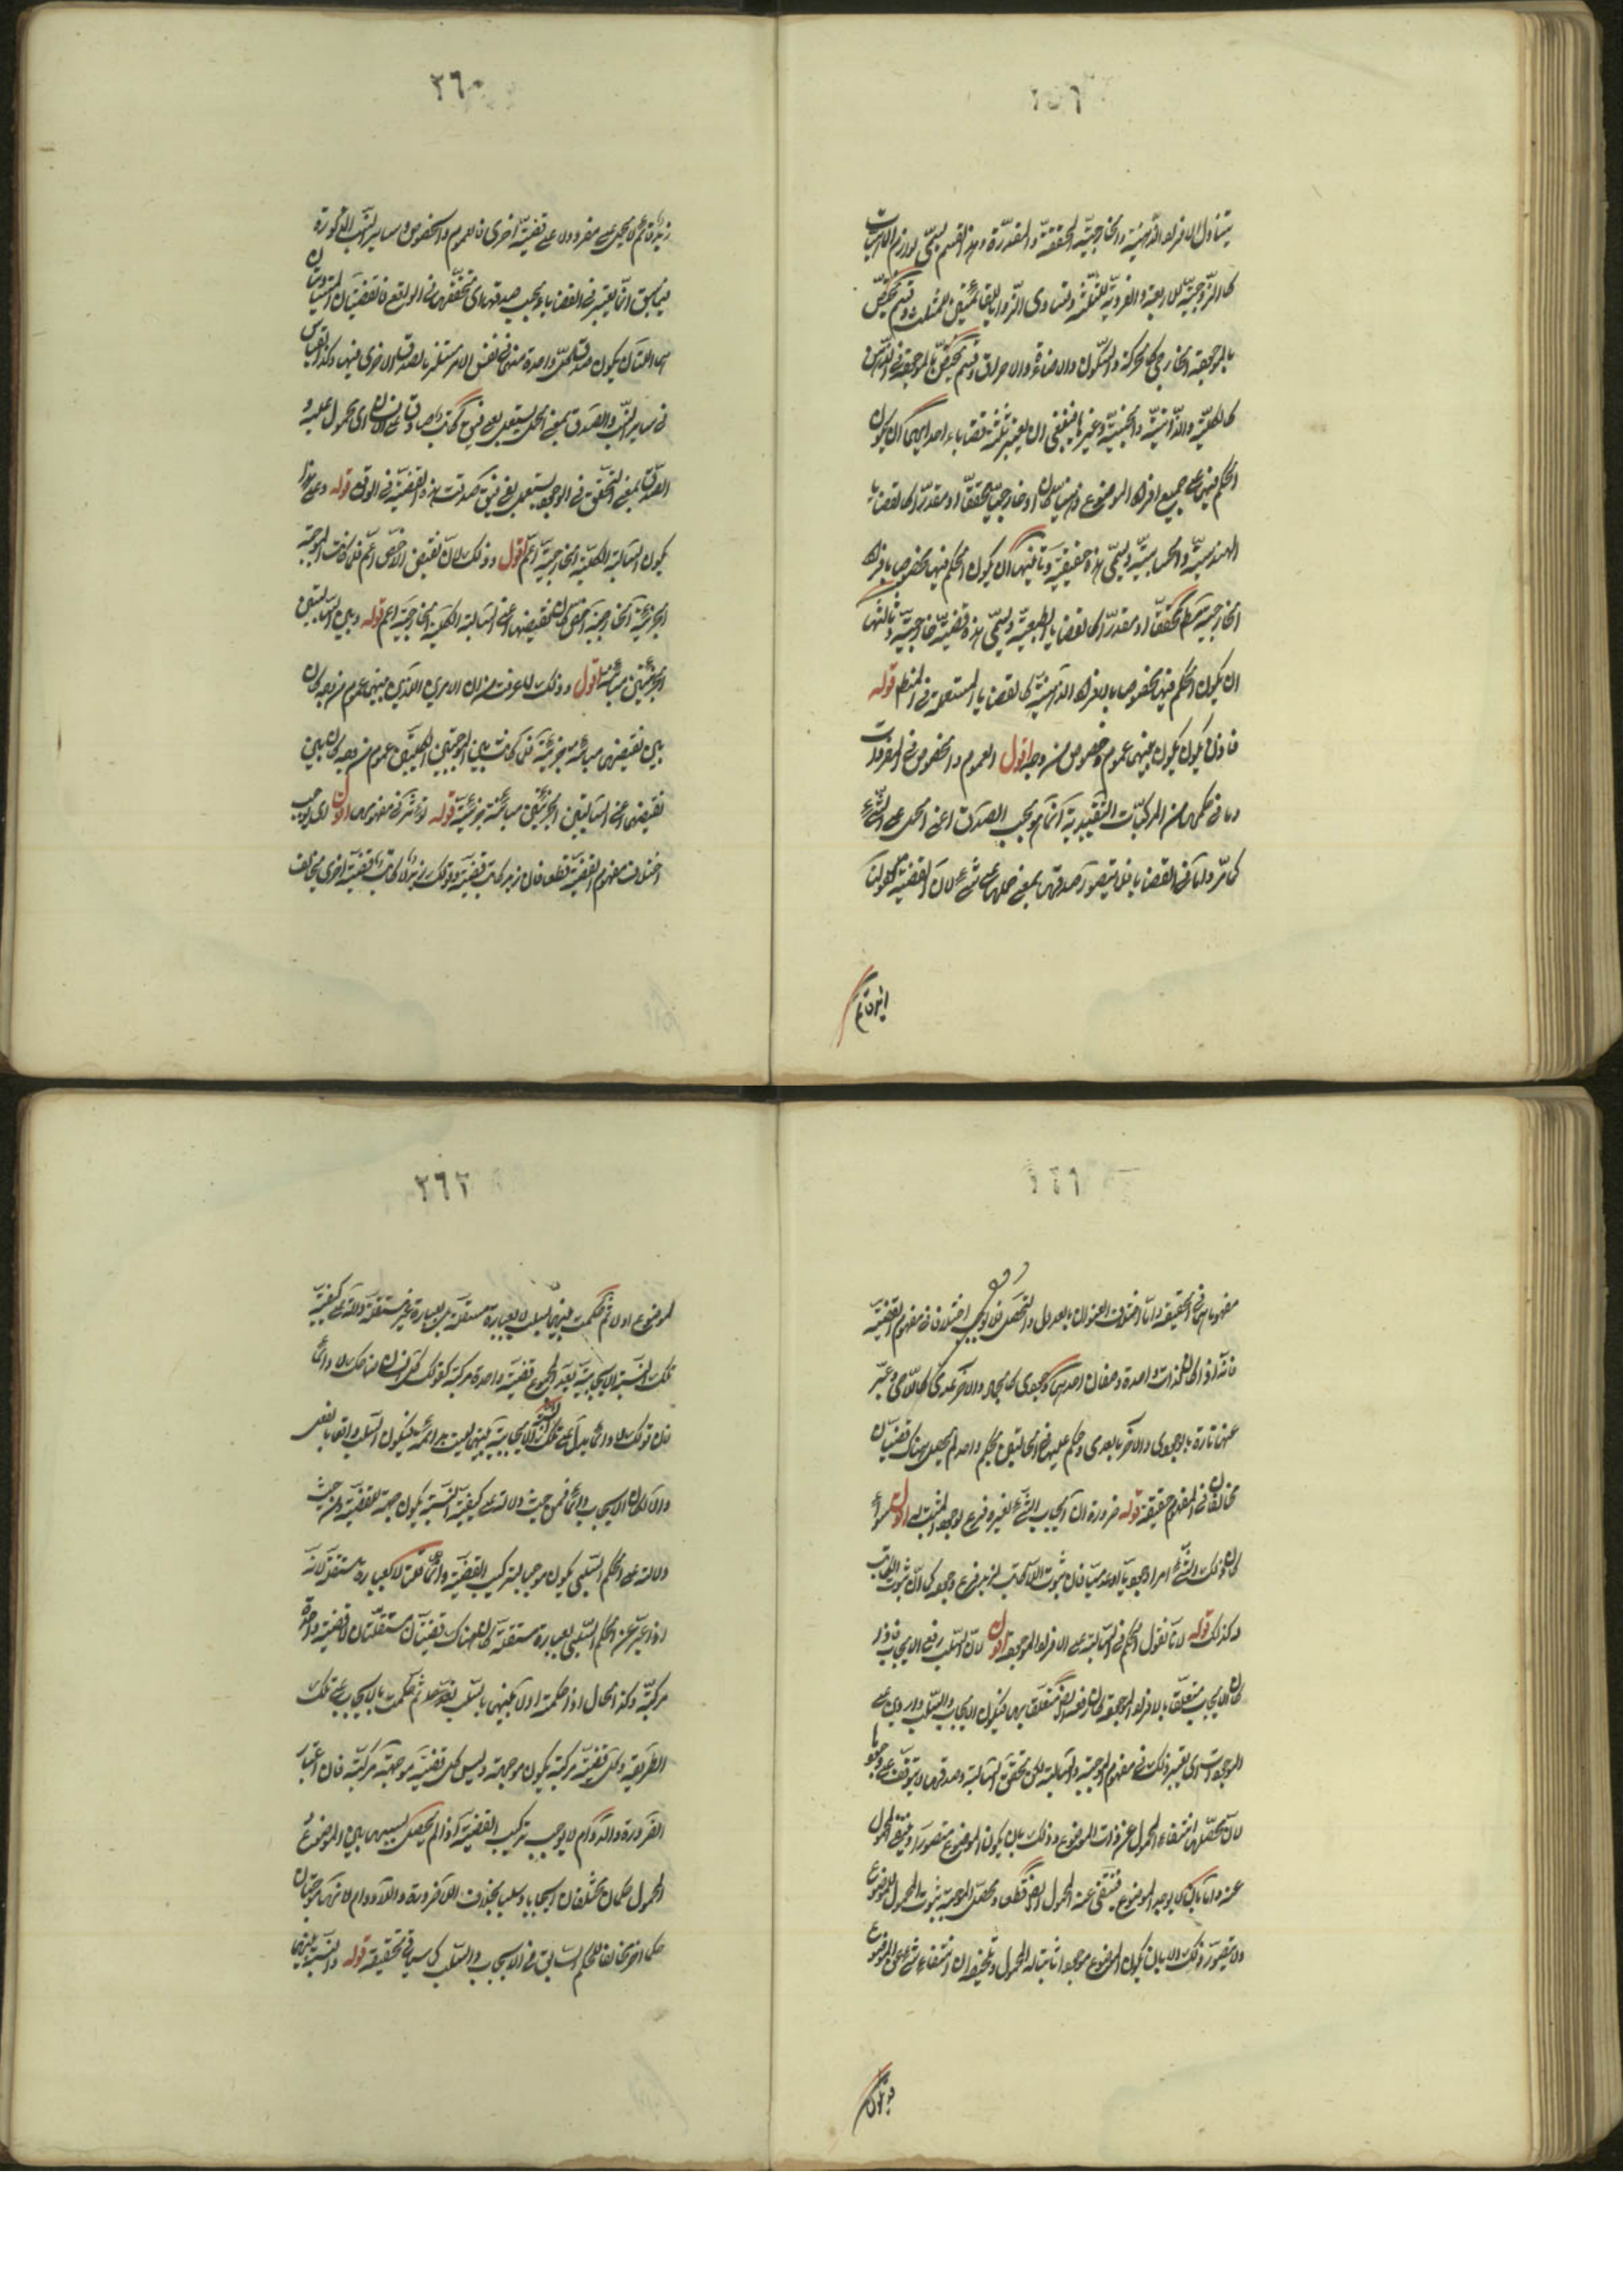 يتناول الافراد الذهنية والخارجية المحققة والمقدرة وهذا القسم يسمى لوازم الماهيات
كالزوجية للاربعة والفردية للثلثة وتساوى الزوايا لقائمتين للمثلث وقسم يختص
بالموجود الخارجى كالحركة والسكون والاضاءة والاحراق وقسم يختص بالموجود فى الذهن
كالكلية والذاتية والجنسية وغيرها فينبغى ان يعتبر ثلثة قضايا احداها ان يكون
الحكم فيها على جميع افراد الموضوع ذهنيا كان او خارجيا محققا او مقدرا كالقضايا
الهندسية والحسابية وتسمى هذه حقيقية وثانيها ان يكون الحكم فيها مخصوصا بافراد
الخارجية مطلقا محققا او مقدرا كالقضايا الطبيعية وتسمى هذه قضية خارجية وثالثها
ان يكون الحكم فيها مخصوصا بالافراد الذهنية كالقضايا المستعملة فى المنطق قوله
فاذن يكون بينهما عموم وخصوص من وجه اقول العموم والخصوص فى المفردات
وما فى حكمها من المركبات التقييدية انما هو بحسب الصدق اعنى الحمل على الشىء
كما مر واما فى القضايا فلا يتصور صدقها بمعنى حملها على شىء لان القضية كقولنا
زيد قائم
٢٦٠
زيد قائم لا يحمل على مفرد ولا على قضية اخرى فالعموم والخصوص وساير النسب المذكورة
فيما سبق انما يعتبر فى القضايا بحسب صدقها اى تحققها فى الواقع فالقضيتان المتساويتان
هما اللتان يكون صدق كل واحدة منهما فى نفس الامر مستلزما لصدق الاخرى فيها وكذا القياس
فى ساير النسب والصدق بمعنى الحمل يستعمل بعلى فيقال الكاتب صادق على الانسان اى محمول عليه و
الصدق بمعنى التحقق فى الوجود يستعمل بفى فيقال صدقت هذه القضية فى الواقع قوله وعلى هذا
يكون السالبة الكلية الخارجية اعم اقول وذلك لان نقيض الاخص اعم فلما كانت الموجبة
الجزئية الخارجية اخص كان نقيضها اعنى السالبة الكلية الخارجية اعم قوله وبين السالبتين
الجزئيتين مباينة اقول وذلك لما عرفت من ان الامرين اللذين بينهما عموم من وجه كان
بين نقيضهما مباينة جزئية فلما كانت بين الموجبتين الكليتين عموم من وجه كان بين
نقيضهما اعنى السالبتين الجزئيتين مباينة جزئية قوله لو تؤثر فى مفهومها اقول اى يوجب
اختلاف مفهوم القضية قطعا فان زيد كاتب قضية وقولك زيد لا كاتب قضية اخرى يخالف
مفهوماهما فى الحقيقة واما اختلاف العنوان بالعدول والتحصيل فلا يوجب اختلافا فى مفهوم القضية
فانه اذا كان لذات واحدة وصفان احدهما وجودى كالجماد والآخر عدمى كاللاحى وعبر
عنها تارة بالوجودى والآخر بالعدمى وحكم عليها فى الحالتين بحكم واحد لم يحصل هناك قضيتان
متخالفتان فى المفهوم حقيقة قوله ضرورة ان ايجاب الشىء لغيره فرع لوجود المثبت له اقول سواء
كان ذلك الشىء امرا وجوديا او عدميا فان ثبوت اللاكاتب لزيد فرع وجوده كما ان ثبوت الكاتب
له كذلك قوله لا نا نقول الحكم فى السالبة على الافراد الموجودة اقول لان السلب رفع الايجاب فاذا
كان الايجاب متعلقا بالافراد الموجودة كان رفعه ايضا متعلقا بها فيكون الايجاب والسلب واردين على
الموجودات اى يعتبر ذلك فى مفهوم الموجبة والسالبة لكن تحقق السالبة وصدقها لا يتوقف على وجودها
لان محصلها انتفاء المحمول عن ذات الموضوع وذلك بان يكون الموضوع متصورا وينتفى المحمول
عنه واما بان لا يوجد الموضوع فينتفى عنه المحمول ايضا قطعا ومحصل الموجبة ثبوت المحمول للموضوع
ولا يتصور ذلك الا بان يكون الموضوع موجودا ثابتا له المحمول وتلخيصه ان انتفاء شىء عن الموضوع
٢٦٢
الموضوع اولا ثم حكمت بينهما بسلب لا بعبارة مستقلة بل بعبارة غير مستقلة دالة على كيفية
تلك النسبة الايجابية يعد المجموع قضية واحدة مركبة كقولك كل انسان ضاحك لا دائما
فان قولك لا دائما يدل على تلك النسبة الايجابية بينهما ليست بدائمة فيكون السلب واقعا بالفعل
والا لكان الايجاب دائما فمن حيث دلالته على كيفية النسبة يكون جهة للقضية ومن حيث
دلالته على الحكم السلبى يكون موجبا لتركيب القضية وانما قلنا لا بعبارة مستقلة لانه
اذا عبر عن الحكم السلبى بعبارة مستقلة كان هناك قضيتان مستقلتان لا قضية واحدة
مركبة وكذا الحال اذا حكمت اولا بينهما بالسلب ثم حكمت بالايجاب على تلك
الطريقة وكل قضية مركبة يكون موجهة وليس كل قضية موجهة مركبة فان اعتبار
الضرورة والدوام لا يوجب تركيب القضية اذا لم يحصل بسببهما بين الموضوع و
المحمول حكمان مختلفان ايجابا وسلبا بخلاف اللاضرورة واللادوام فانهما يوجبان
حكما آخر مخالفا للحكم السابق فى الايجاب والسلب كما سيأتى تحقيقه قوله والنسبة بينهما